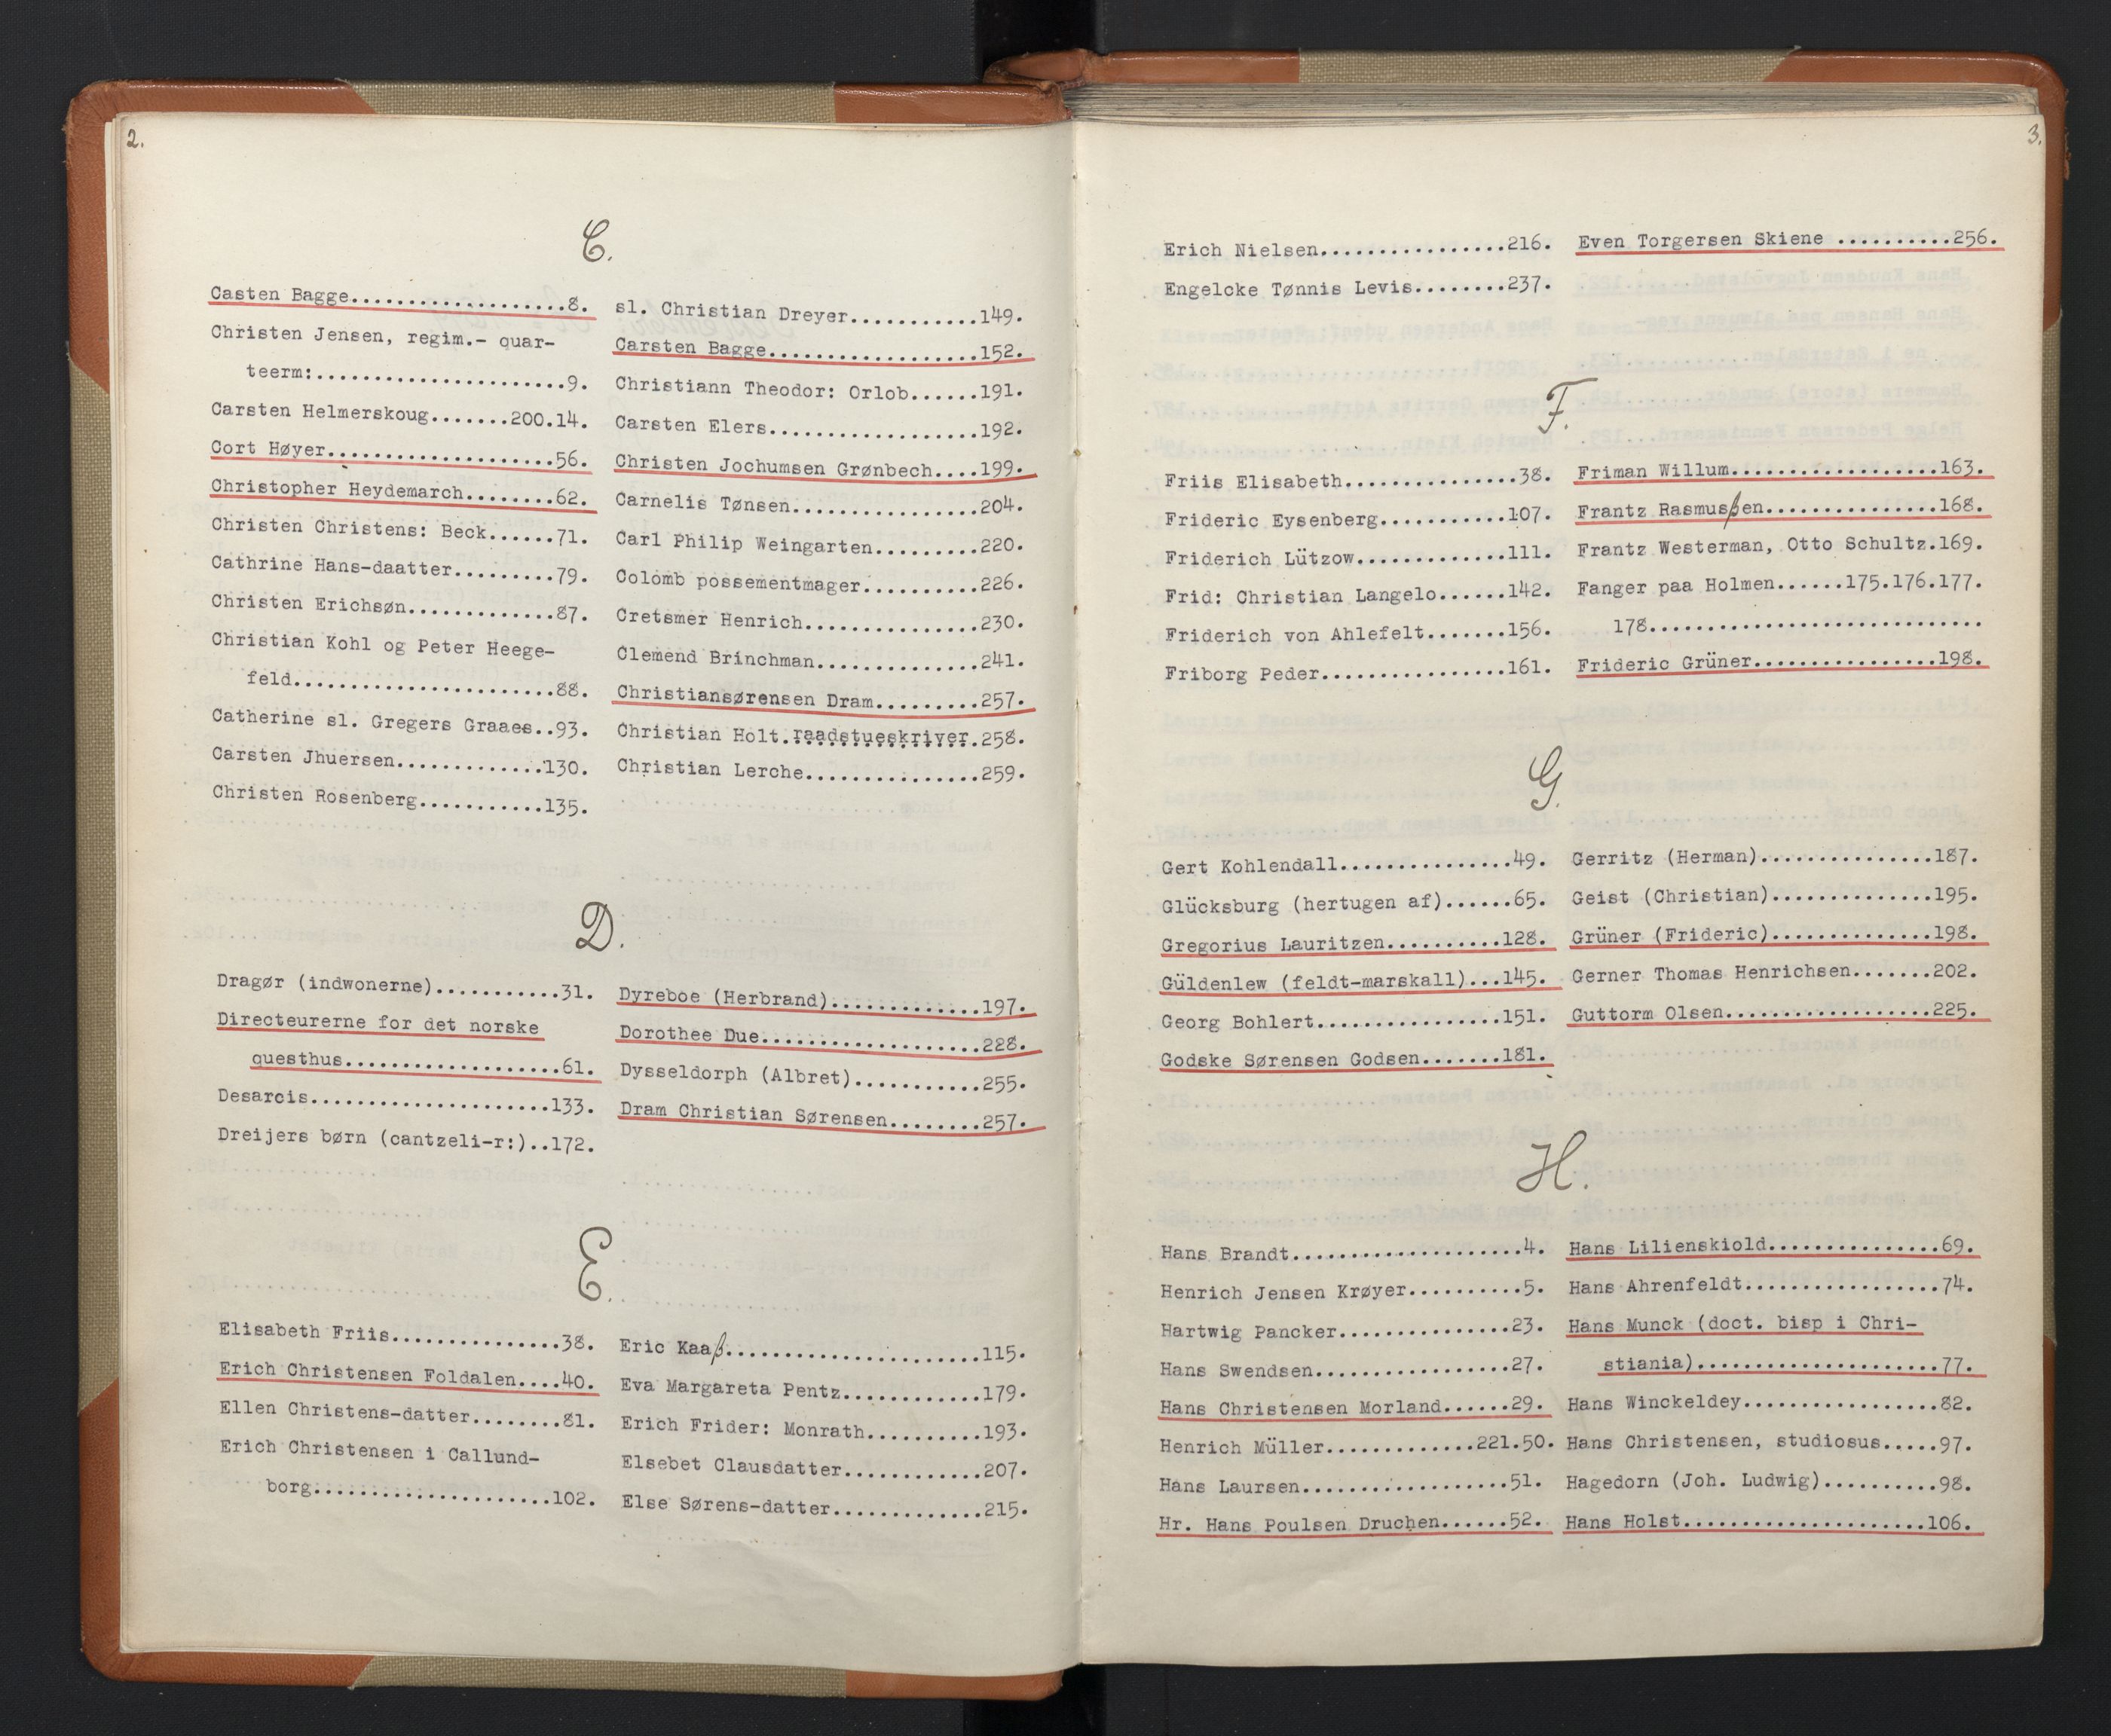 2.
C.
Casten Bagge...................8.
Christen Jensen, regim.- quar-
teerm:......................9.
Carsten Helmerskoug.......200.14.
Cort Høyer....................56.
Christopher Heydemarch........62.
Christen Christens: Beck......71.
Cathrine Hans-daatter.........79.
Christen Erichsøn.............87.
Christian Kohl og Peter Heege-
feld.......................88.
Catherine sl. Gregers Graaes..93.
Carsten Jhuersen.............130.
Christen Rosenberg...........135.
sl. Christian Dreyer...........149.
Carsten Bagge..................152.
Christiann Theodor: Orlob......191.
Carsten Elers..................192.
Christen Jochumsen Grønbech....199.
Carnelis Tønsen................204.
Carl Philip Weingarten.........220.
Colomb possementmager..........226.
Cretsmer Henrich...............230.
Clemend Brinchman..............241.
Christiansørensen Dram.........257.
Christian Holt.raadstueskriver.258.
Christian Lerche...............259.
D.
Dragør (indwonerne)...........31.
Directeurerne for det norske
questhus...................61.
Desarcis.....................133.
Dreijers børn (cantzeli-r:)..172.
Dyreboe (Herbrand).............197.
Dorothee Due...................228.
Dysseldorph (Albret)...........255.
Dram Christian Sørensen........257.
E.
Elisabeth Friis...............38.
Erich Christensen Foldalen....40.
Ellen Christens-datter........81.
Erich Christensen i Callund-
borg.....................102.
Eric Kaaß......................115.
Eva Margareta Pentz............179.
Erich Frider: Monrath..........193.
Elsebet Clausdatter............207.
Else Sørens-datter.............215.
3.
Erich Nielsen................216.
Engelcke Tønnis Levis........237.
Even Torgersen Skiene ..........256.
F.
Friis Elisabeth...............38.
Frideric Eysenberg...........107.
Friderich Lützow.............111.
Frid: Christian Langelo......142.
Friderich von Ahlefelt.......156.
Friborg Peder................161.
Friman Willum..................163.
Frantz Rasmusßen...............168.
Frantz Westerman, Otto Schultz.169.
Fanger paa Holmen......175.176.177.
178.............................
Frideric Grüner................198.
G.
Gert Kohlendall...............49.
Glücksburg (hertugen af)......65.
Gregorius Lauritzen..........128.
Güldenlew (feldt-marskall)...145.
Georg Bohlert................151.
Godske Sørensen Godsen.......181.
Gerritz (Herman)...............187.
Geist (Christian)..............195.
Grüner (Frideric)..............198.
Gerner Thomas Henrichsen.......202.
Guttorm Olsen..................225.
H.
Hans Brandt....................4.
Henrich Jensen Krøyer..........5.
Hartwig Pancker...............23.
Hans Swendsen.................27.
Hans Christensen Morland......29.
Henrich Müller.............221.50.
Hans Laursen..................51.
Hr. Hans Poulsen Druchen......52.
Hans Lilienskiold...............69.
Hans Ahrenfeldt.................74.
Hans Munck (doct. bisp i Chri-
stiania).....................77.
Hans Winckeldey.................82.
Hans Christensen, studiosus.....97.
Hagedorn (Joh. Ludwig)..........98.
Hans Holst.....................106.